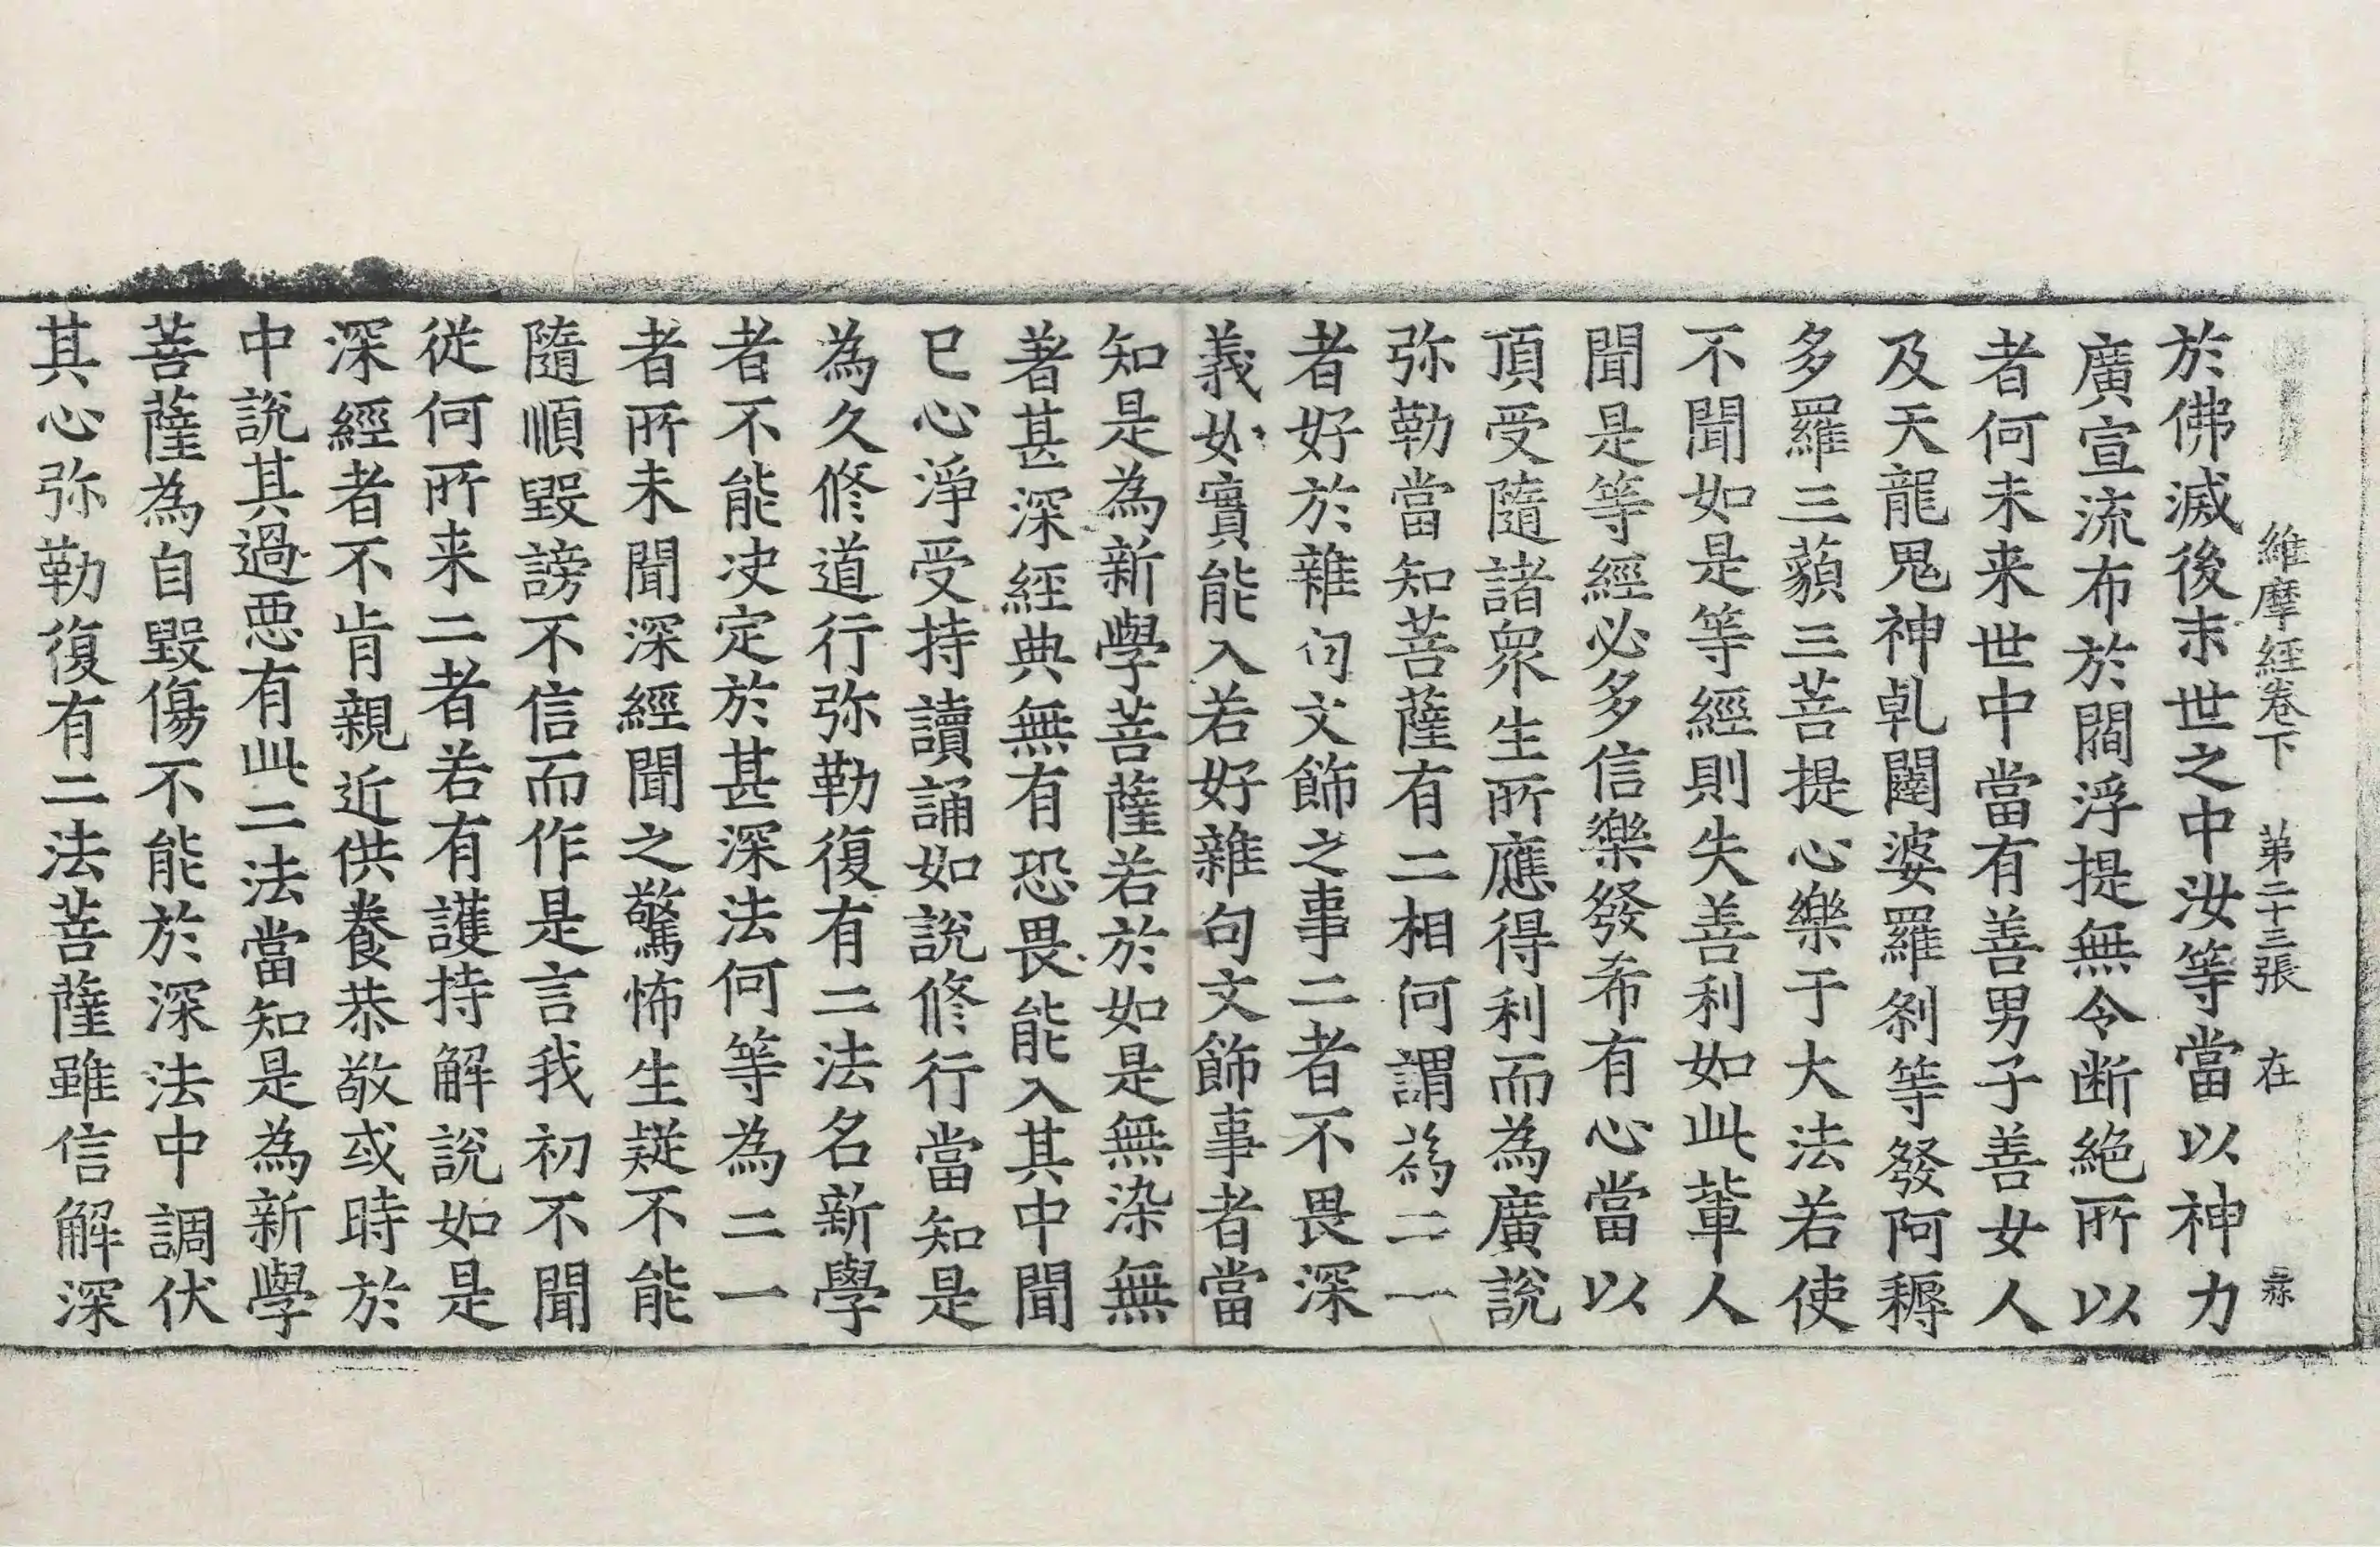 維摩経卷下 苐二十三張 在
於佛滅後末世之中汝等當以神力
廣宣流布於閻浮提無令断絶所以
者何未来世中當有善男子善女人
及天龍鬼神乹闥婆羅刹等發阿耨
多羅三藐三菩提心樂于大法若使
不聞如是等經則失善利如此軰人
聞是等經必多信樂發希有心當以
頂受隨諸衆生所應得利而為廣說
弥勒當知菩薩有二相何謂為二一
者好於雜句文飾之事二者不畏深
義如實能入若好雜句文飾事者當
知是為新學菩薩若於如是無染無
著甚深經典無有恐畏能入其中聞
已心淨受持讀誦如說修行當知是
為久修道行弥勒復有二法名新學
者不能决定於甚深法何等為二一
者所未聞深經聞之驚怖生疑不能
隨順毀謗不信而作是言我初不聞
從何所来二者若有護持解說如是
深經者不肯親近供養恭敬或時於
中說其過惡有此二法當知是為新學
菩薩為自毀傷不能於深法中調伏
其心弥勒復有二法菩薩雖信解深